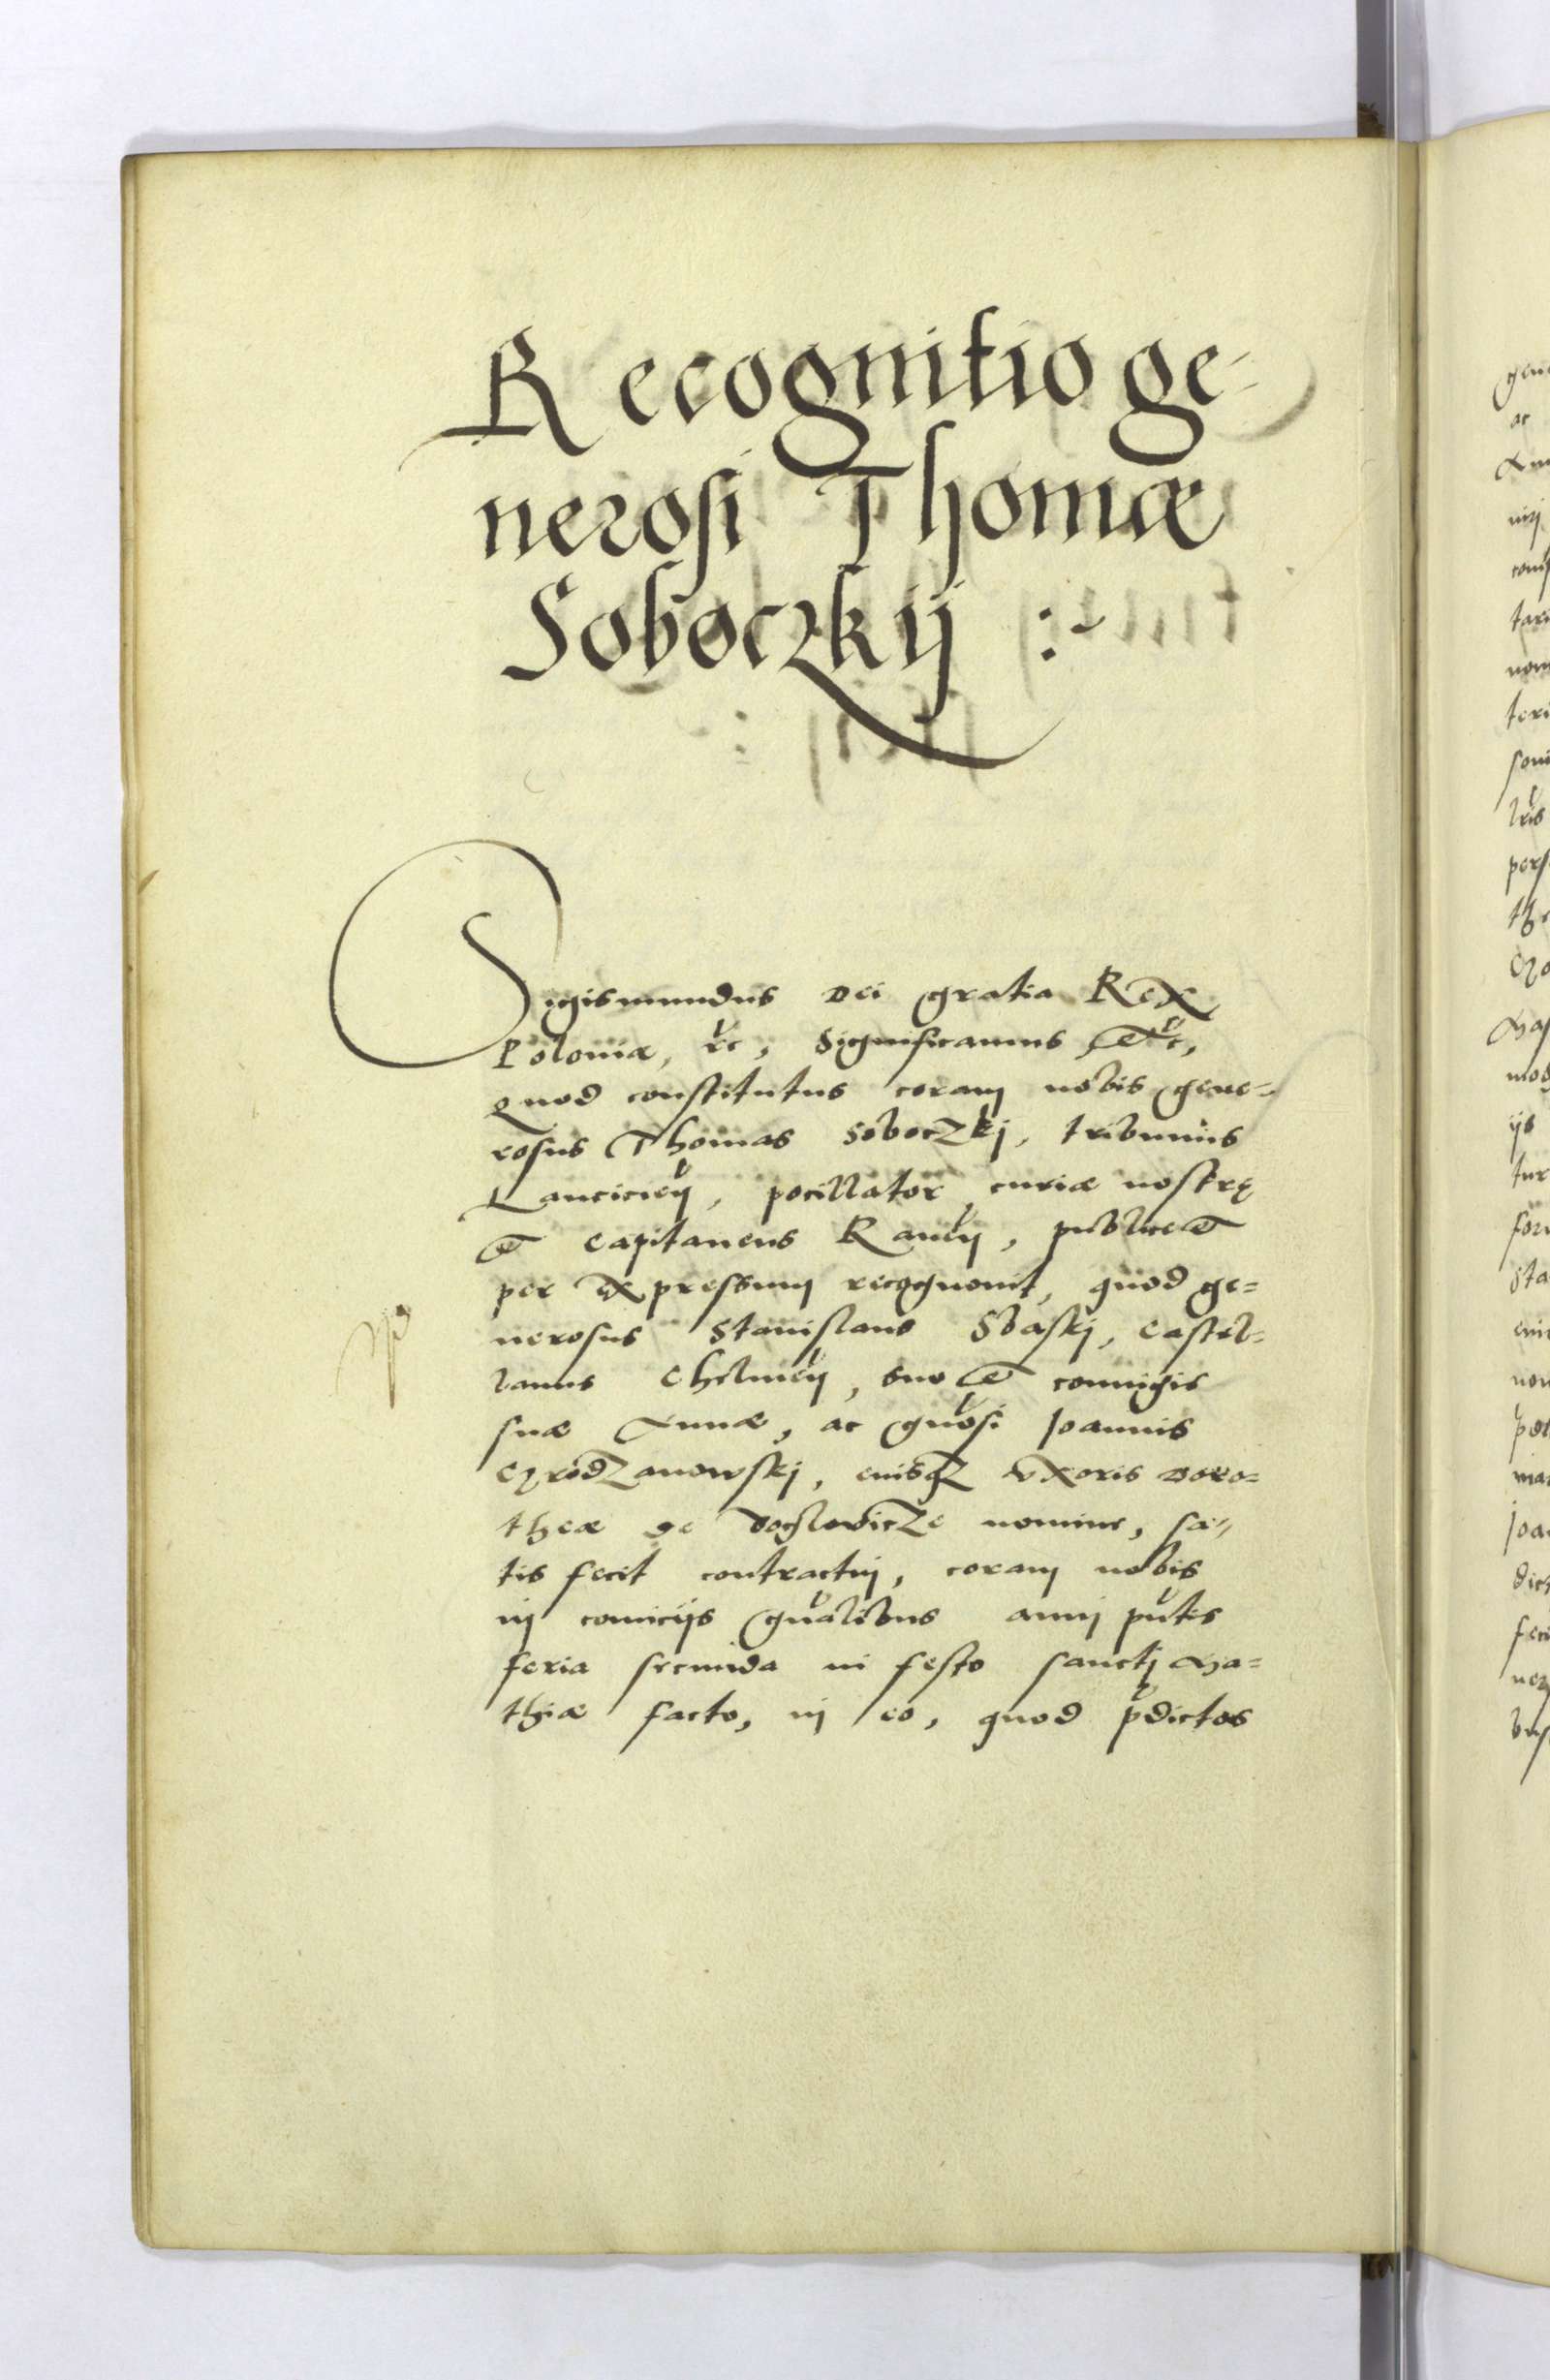 Recognitio ge-
nerosi Thomæ
Soboczkij :~
Sigismundus Dei gratia Rex
Poloniæ, &c, Significamus &c,
Quod constitutus coram nobis gene-
rosus Thomas Soboczkj, tribunus
Lancicieñ, pocillator curiæ nostrę
et Capitaneus Raveñ, publice et
per expressum recognovit, quod ge=
nerosus Stanislaus Sbaskj, Castel=
lanus Chelmeñ, suo et coniugis
suæ Annæ, ac gnosi Joannis
Chrodzanowskj, eiusqz uxoris Doro=
theæ de nomine, sa=
tis fecit contractui, coram nobis
in comiciis gnalibus anni pntis
feria secunda in festo sanctj Ma=
thiæ facto, in eo, quod pdictos